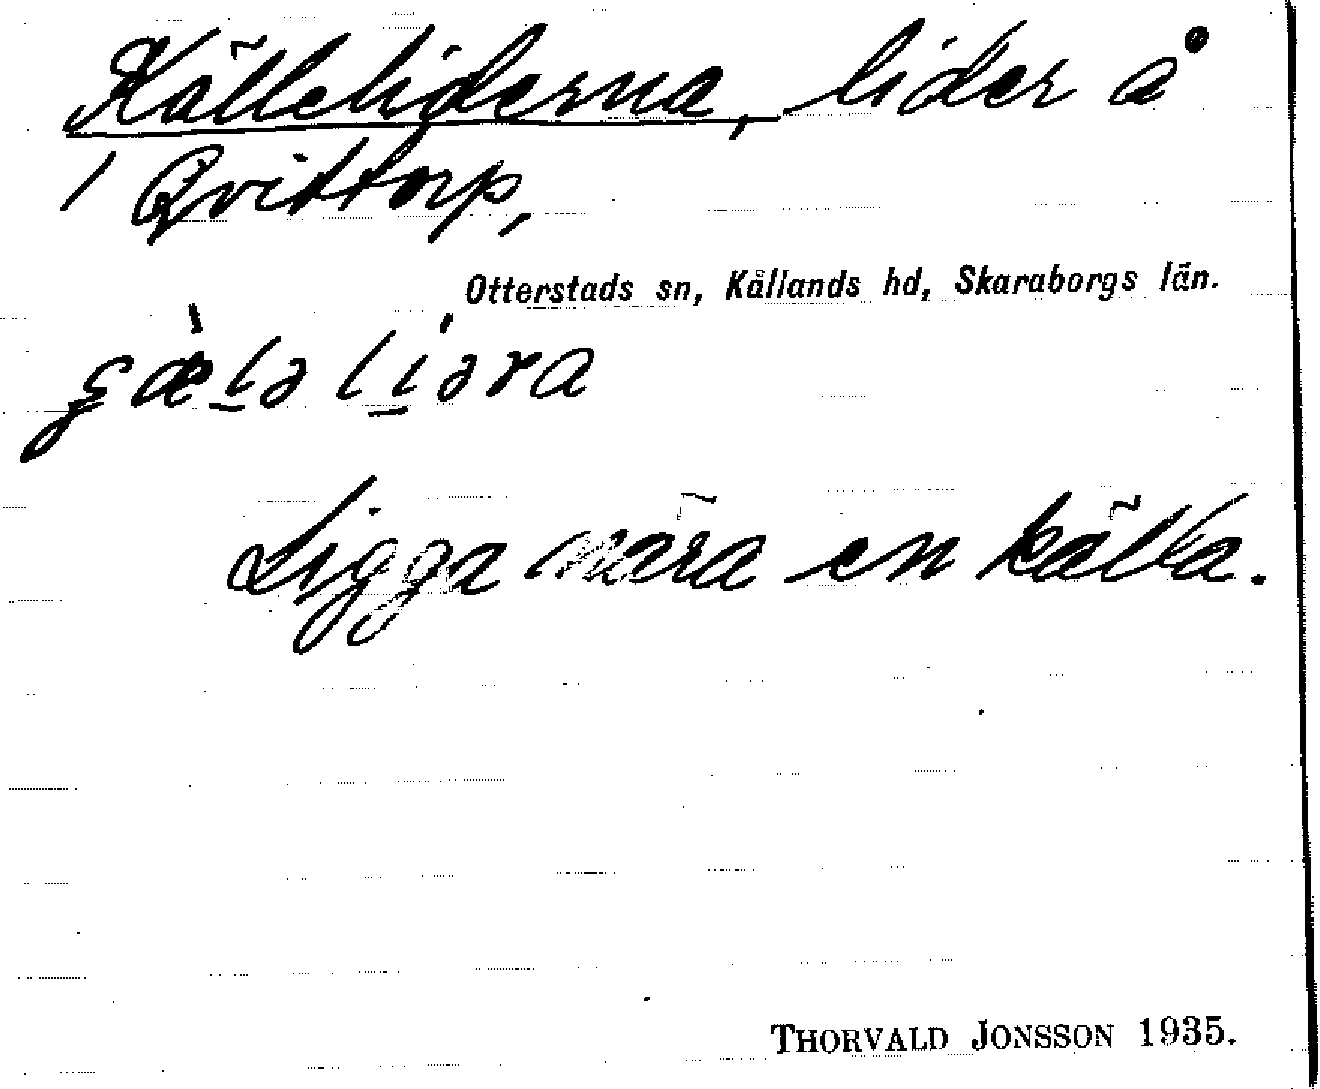 Källeliderna, lider å
1 Qvittorp,
Otterstads sn, Kållands hd, Skaraborgs län.
Ligga nära en källa.
THORVALD JONSSON 1935.